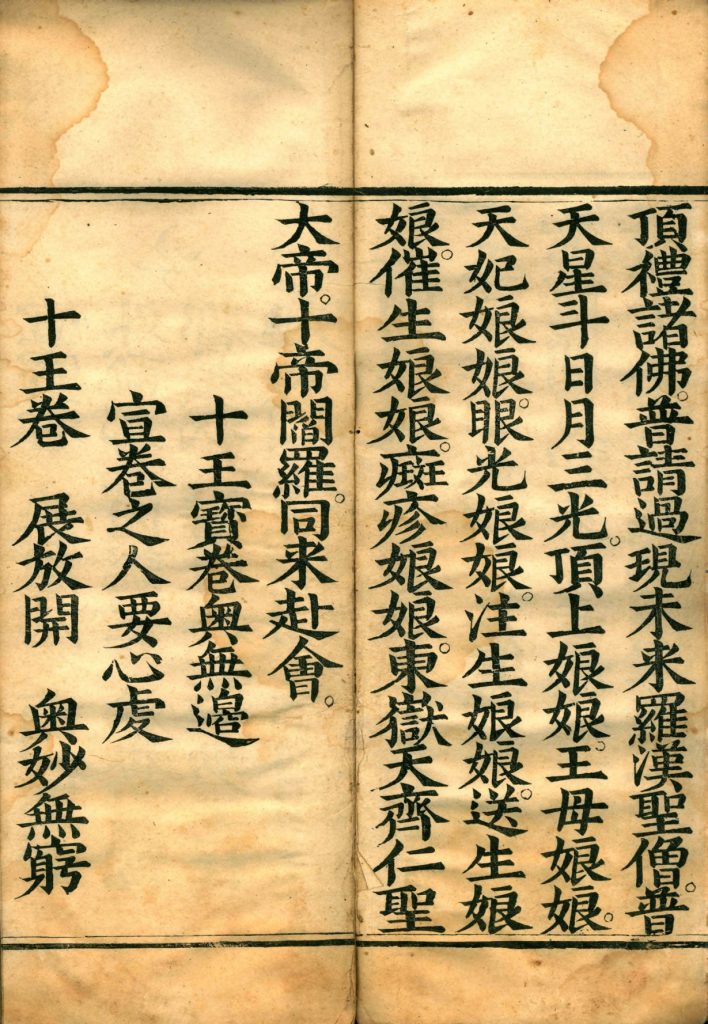 頂禮諸佛。普請過現未来羅漢聖僧。普
天星斗日月三光。頂上娘娘。王母娘娘。
天妃娘娘。眼光娘娘。注生娘娘。送生娘
娘。催生娘娘。癍疹娘娘。東嶽天齊仁聖
大帝。十帝閻羅。同来赴會。
十王寶卷奥無邉
宣卷之人要心虔
十王卷 展放開 奥妙無窮